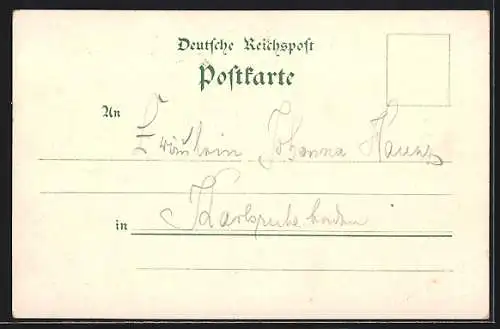 Deutsche Reichspost
Postkarte
An Fräulein Johanna
in Karlsruhe